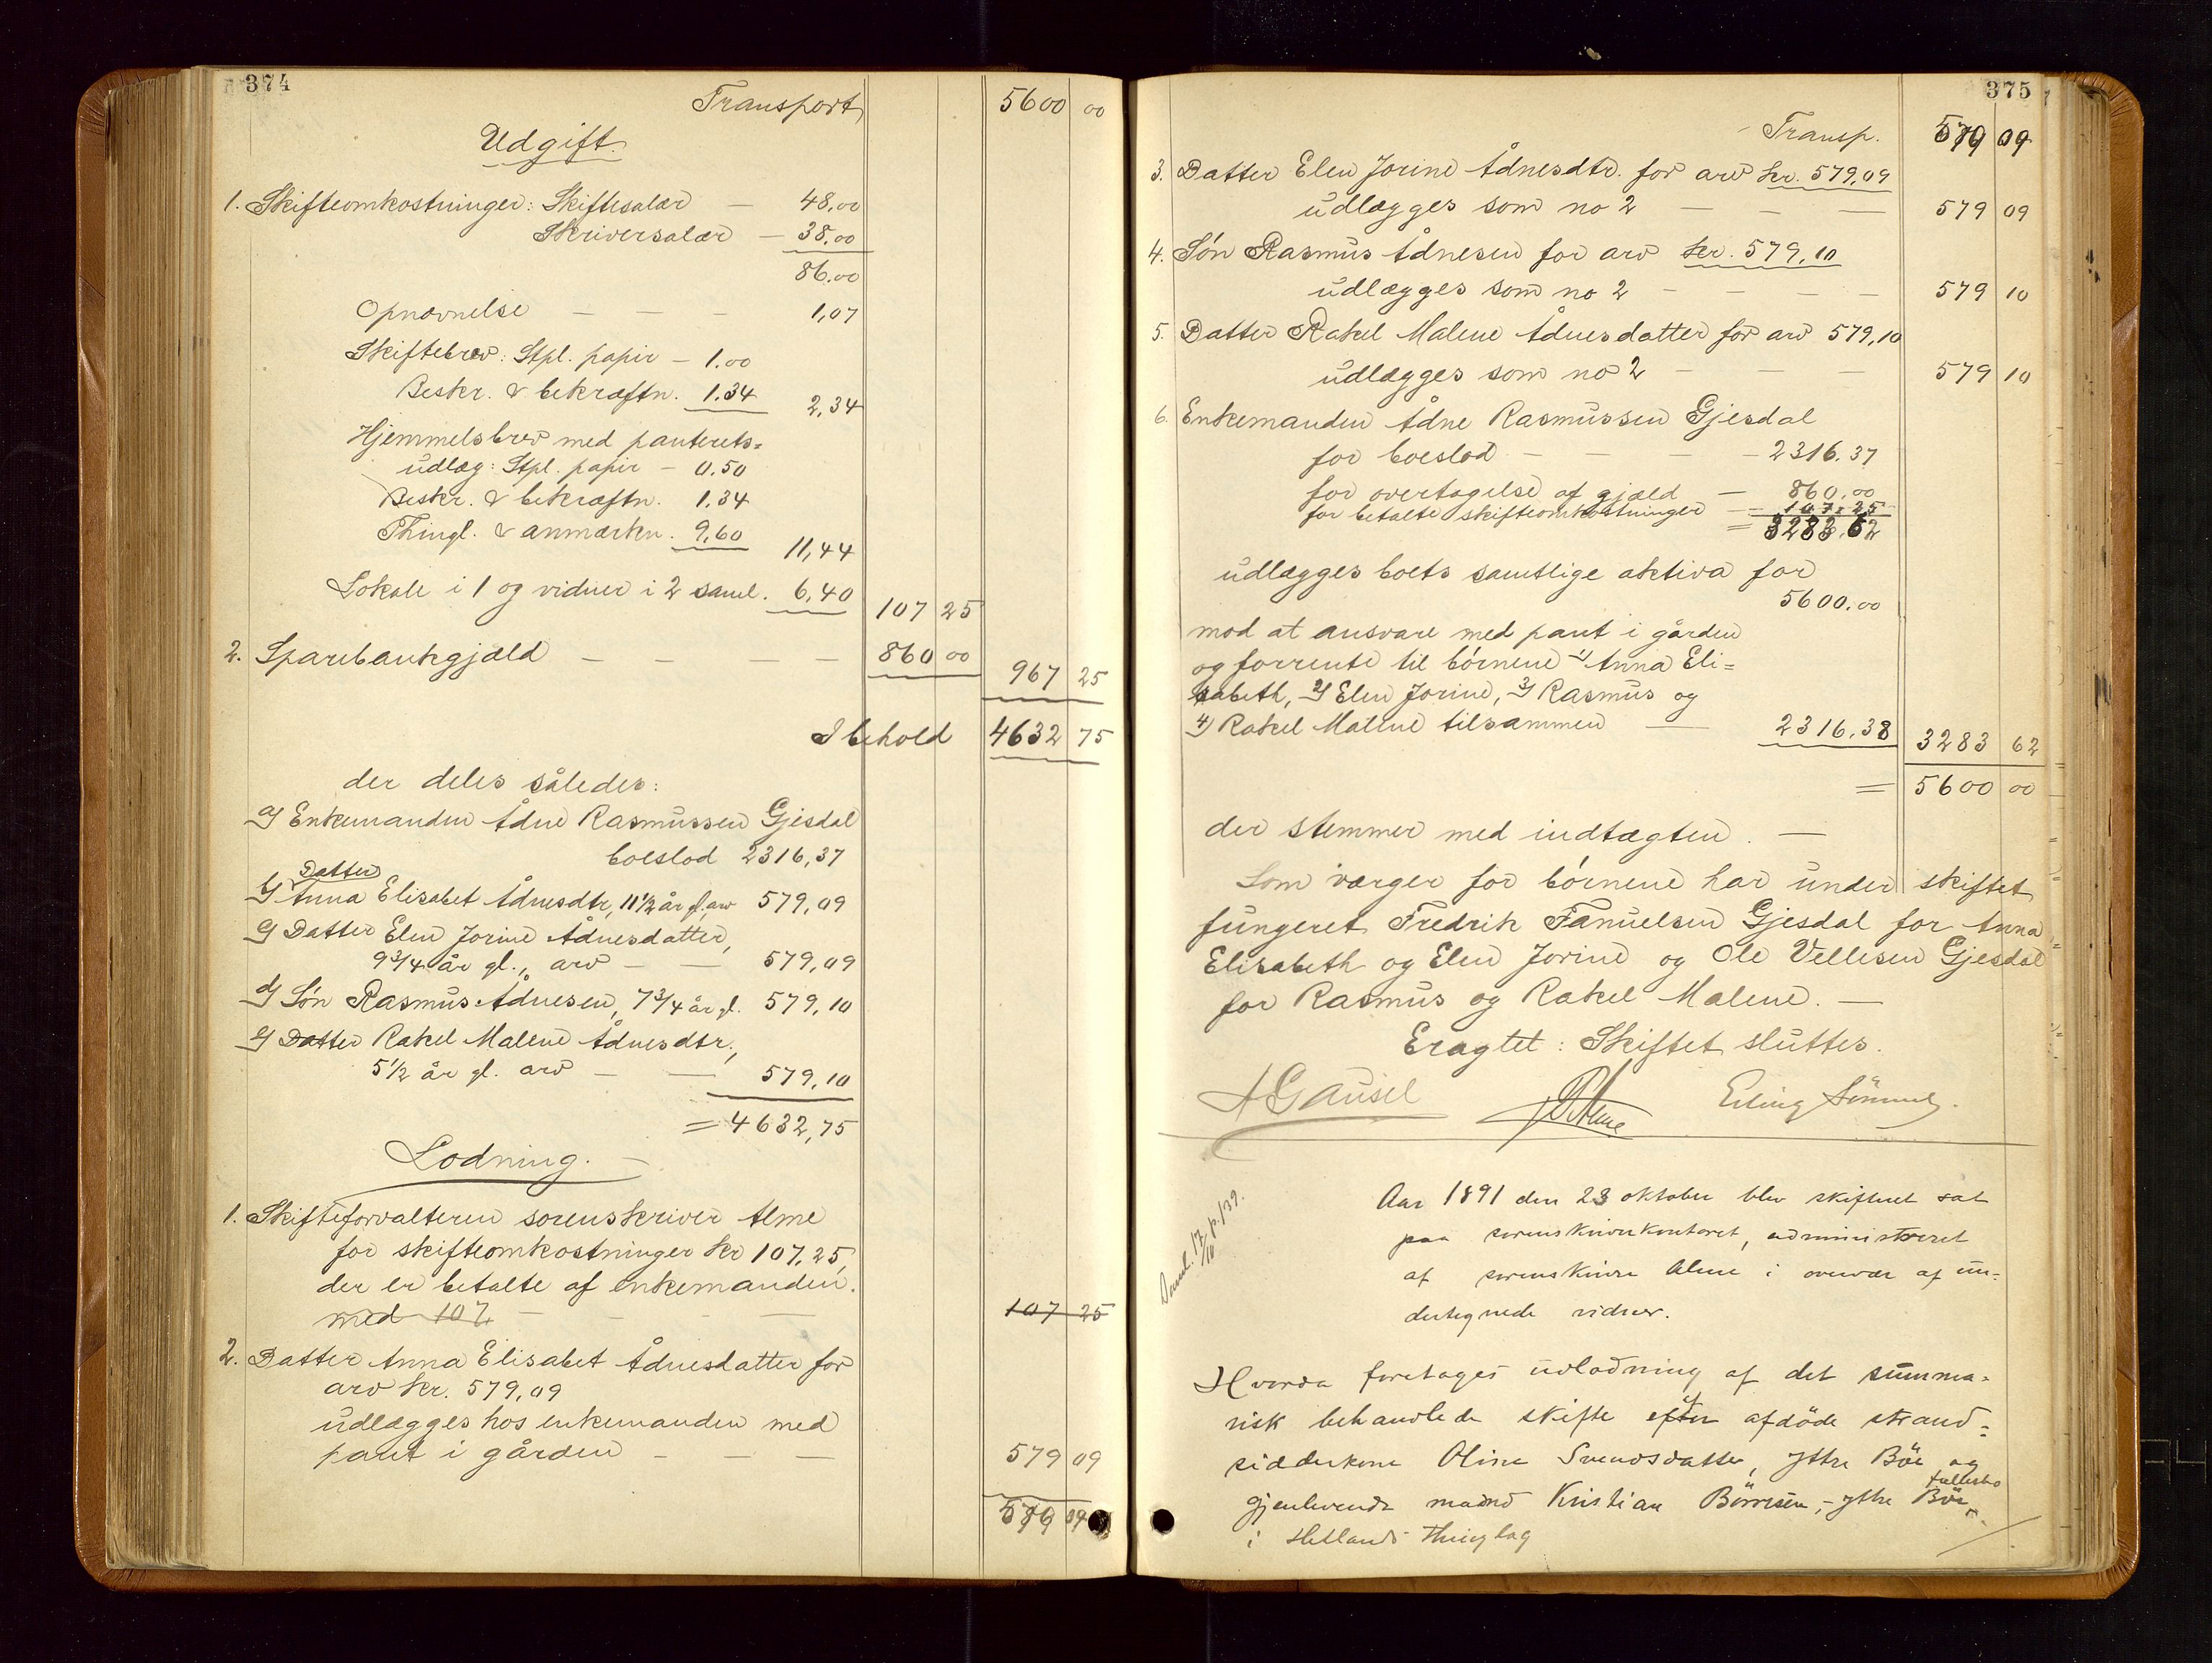 374
Transport 5600 00
Udgift.
1. Skifteomkostninger: Skiftesalær — 48,00
Skriversalær — 38,00
86,00
Opnævnelse — — — 1,07
Skiftebrev: Stpl. papir — 1.00
Beskr. & bekræftn. 1.34 2,34
Hjemmelsbrev med panterets=
udlæg: Stpl. papir — 0.50
Beskr. & bekræftn. 1.34
Thingl. & anmærkn. 9,60 11,44
Lokale i 1 og vidner i 2 saml. 6,40 107 25
2. Sparebankgjæld — — — — 860 00 967 25
I behold 4632 75
der deles således:
a) Enkemanden Ådne Rasmussen Gjesdal
boeslod 2316,37
Datter
b) Anna Elisabet Ådnesdtr, 11 1/2 år gl., arv 579,09
c) Datter Elen Jorine Ådnesdatter,
9 3/4 år gl., arv — — 579,09
d) Søn Rasmus Ådnesen, 7 3/4 år gl. 579,10
e) Datter Rakel Malene Ådnesdtr.,
5 1/2 år gl. arv — — 579,10
= 4632,75
Lodning. —
1. Skifteforvalteren sorenskriver Alme
for skifteomkostninger kr 107,25,
der er betalte af enkemanden.
med 107, — — — 107 25
2. Datter Anna Elisabet Ådnesdatter for
arv kr. 579,09
udlægges hos enkemanden med
pant i gården — — — 579 09
579 09
375
Transp. 579 09
3. Datter Elen Jorine Ådnesdtr. for arv kr. 579,09
udlægges som no 2 — — — 579 09
4. Søn Rasmus Ådnesen for arv kr. 579,10
udlægges som no 2 — — — — 579 10
5. Datter Rakel Malene Ådnesdatter for arv 579,10
udlægges som no 2 — — — 579 10
6. Enkemanden Ådne Rasmussen Gjesdal
for boeslod — — — — 2316.37
for overtagelse af gjæld — 860.00
for betalte skifteomkostninger — 107.25
= 3283.62
udlægges boets samtlige aktiva for
5600.00
mod at ansvare med pant i gården
og forrente til børnene 1) Anna Eli=
sabeth, 2) Elen Jorine, 3) Rasmus og
4) Rakel Malene tilsammen — 2316.38 3283 62
= 5600 00
der stemmer med indtægten. —
Som værger for børnene har under skiftet
fungeret Fredrik Fanuelsen Gjesdal for Anna
Elisabeth og Elen Jorine og Ole Vellesen Gjesdal
for Rasmus og Rakel Malene. —
Eragtet: Skiftet sluttes.
A Gausel Alme Erling Sömme.
Aar 1891 den 23 oktober blev skifteret sat
paa sorenskriverkontoret, administreret
af sorenskriver Alme i overvær af un=
dertegnede vidner.
17/10 p. 139.
Hvorda foretages udlodning af det summa=
risk behandlede skifte efter afdöde strand=
sidderkone Oline Svendsdatter, Ytre Böe og
gjenlevende mand Kristian Börresen, Ytre Böe fællesbo
i Hetlands thinglag